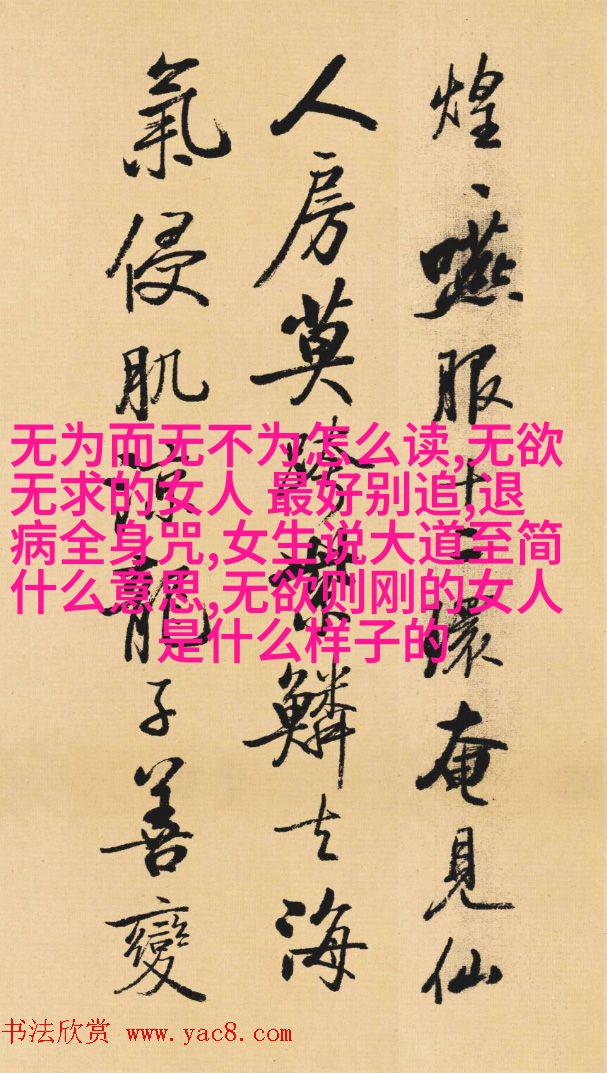 煌、嚥服十二環奄見仙
人房莫跨鱗去海
氣侵肌涼龍子善變
无为而无不为怎么读,无欲
无求的女人 最好别追,退
病全身咒,女生说大道至简
什么意思,无欲则刚的女人
是什么样子的
书法欣赏 www.yac8.com